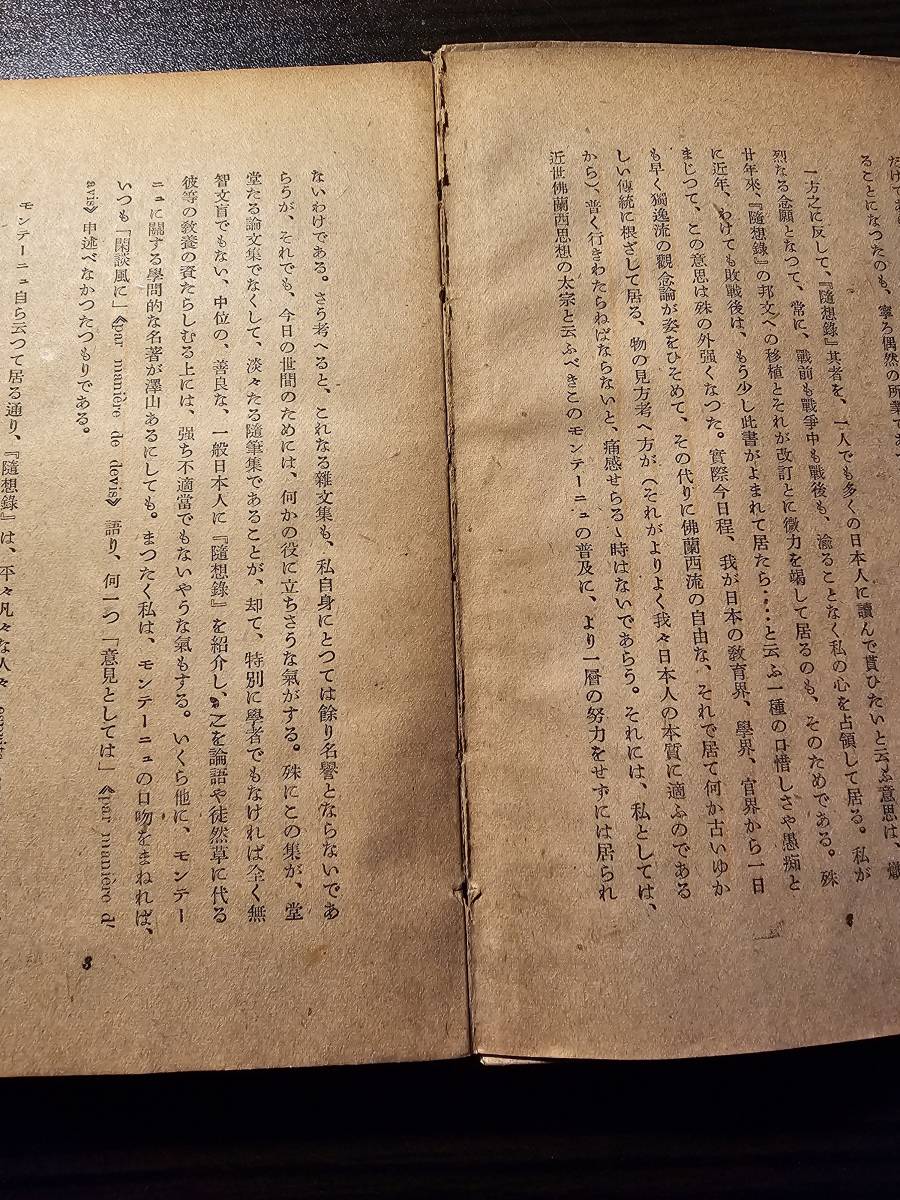 だけであ
ることになつたのも、寧ろ偶然の所業であ
一方之に反して、『隨想錄』其者を、一人でも多くの日本人に讀んで貰ひたいと云ふ意思は、熾
烈なる念願となつて、常に、戰前も戰爭中も戰後も、渝ることなく私の心を占領して居る。私が
廿年來、『隨想錄』の邦文への移植とそれが改訂とに微力を竭して居るのも、そのためである。殊
に近年、わけても敗戰後は、もう少し此書がよまれて居たら・・・・と云ふ一種の口惜しさや愚痴と
まじつて、この意思は殊の外强くなつた。實際今日程、我が日本の敎育界、學界、官界から一日
も早く獨逸流の觀念論が姿をひそめて、その代りに佛蘭西流の自由な、それで居て何か古いゆか
しい傳統に根ざして居る、物の見方考へ方が(それがよりよく我々日本人の本質に適ふのである
から)、普く行きわたらねばならないと、痛感せらるゝ時はないであらう。それには、私としては、
近世佛蘭西思想の太宗と云ふべきこのモンテーニュの普及に、より一層の努力をせずには居られ
ないわけである。さう考へると、これなる雜文集も、私自身にとつては餘り名譽とならないであ
らうが、それでも、今日の世間のためには、何かの役に立ちさうな氣がする。殊にこの集が、堂
堂たる論文集でなくして、淡々たる隨筆集であることが、却て、特別に學者でもなければ全く無
智文盲でもない、中位の、善良な、一般日本人に『隨想錄』を紹介し、之を論語や徒然草に代る
彼等の敎養の資たらしむる上には、强ち不適當でもないやうな氣もする。いくら他に、モンテー
ニュに關する學問的な名著が澤山あるにしても。まつたく私は、モンテーニュの口吻をまねれば、
いつも「閑談風に」《par manière de devis》語り、何一つ「意見としては」《par manière d'
avis》申述べなかつたつもりである。
モンテーニュ自ら云つて居る通り、『隨想錄』は、平々凡々な人々
3